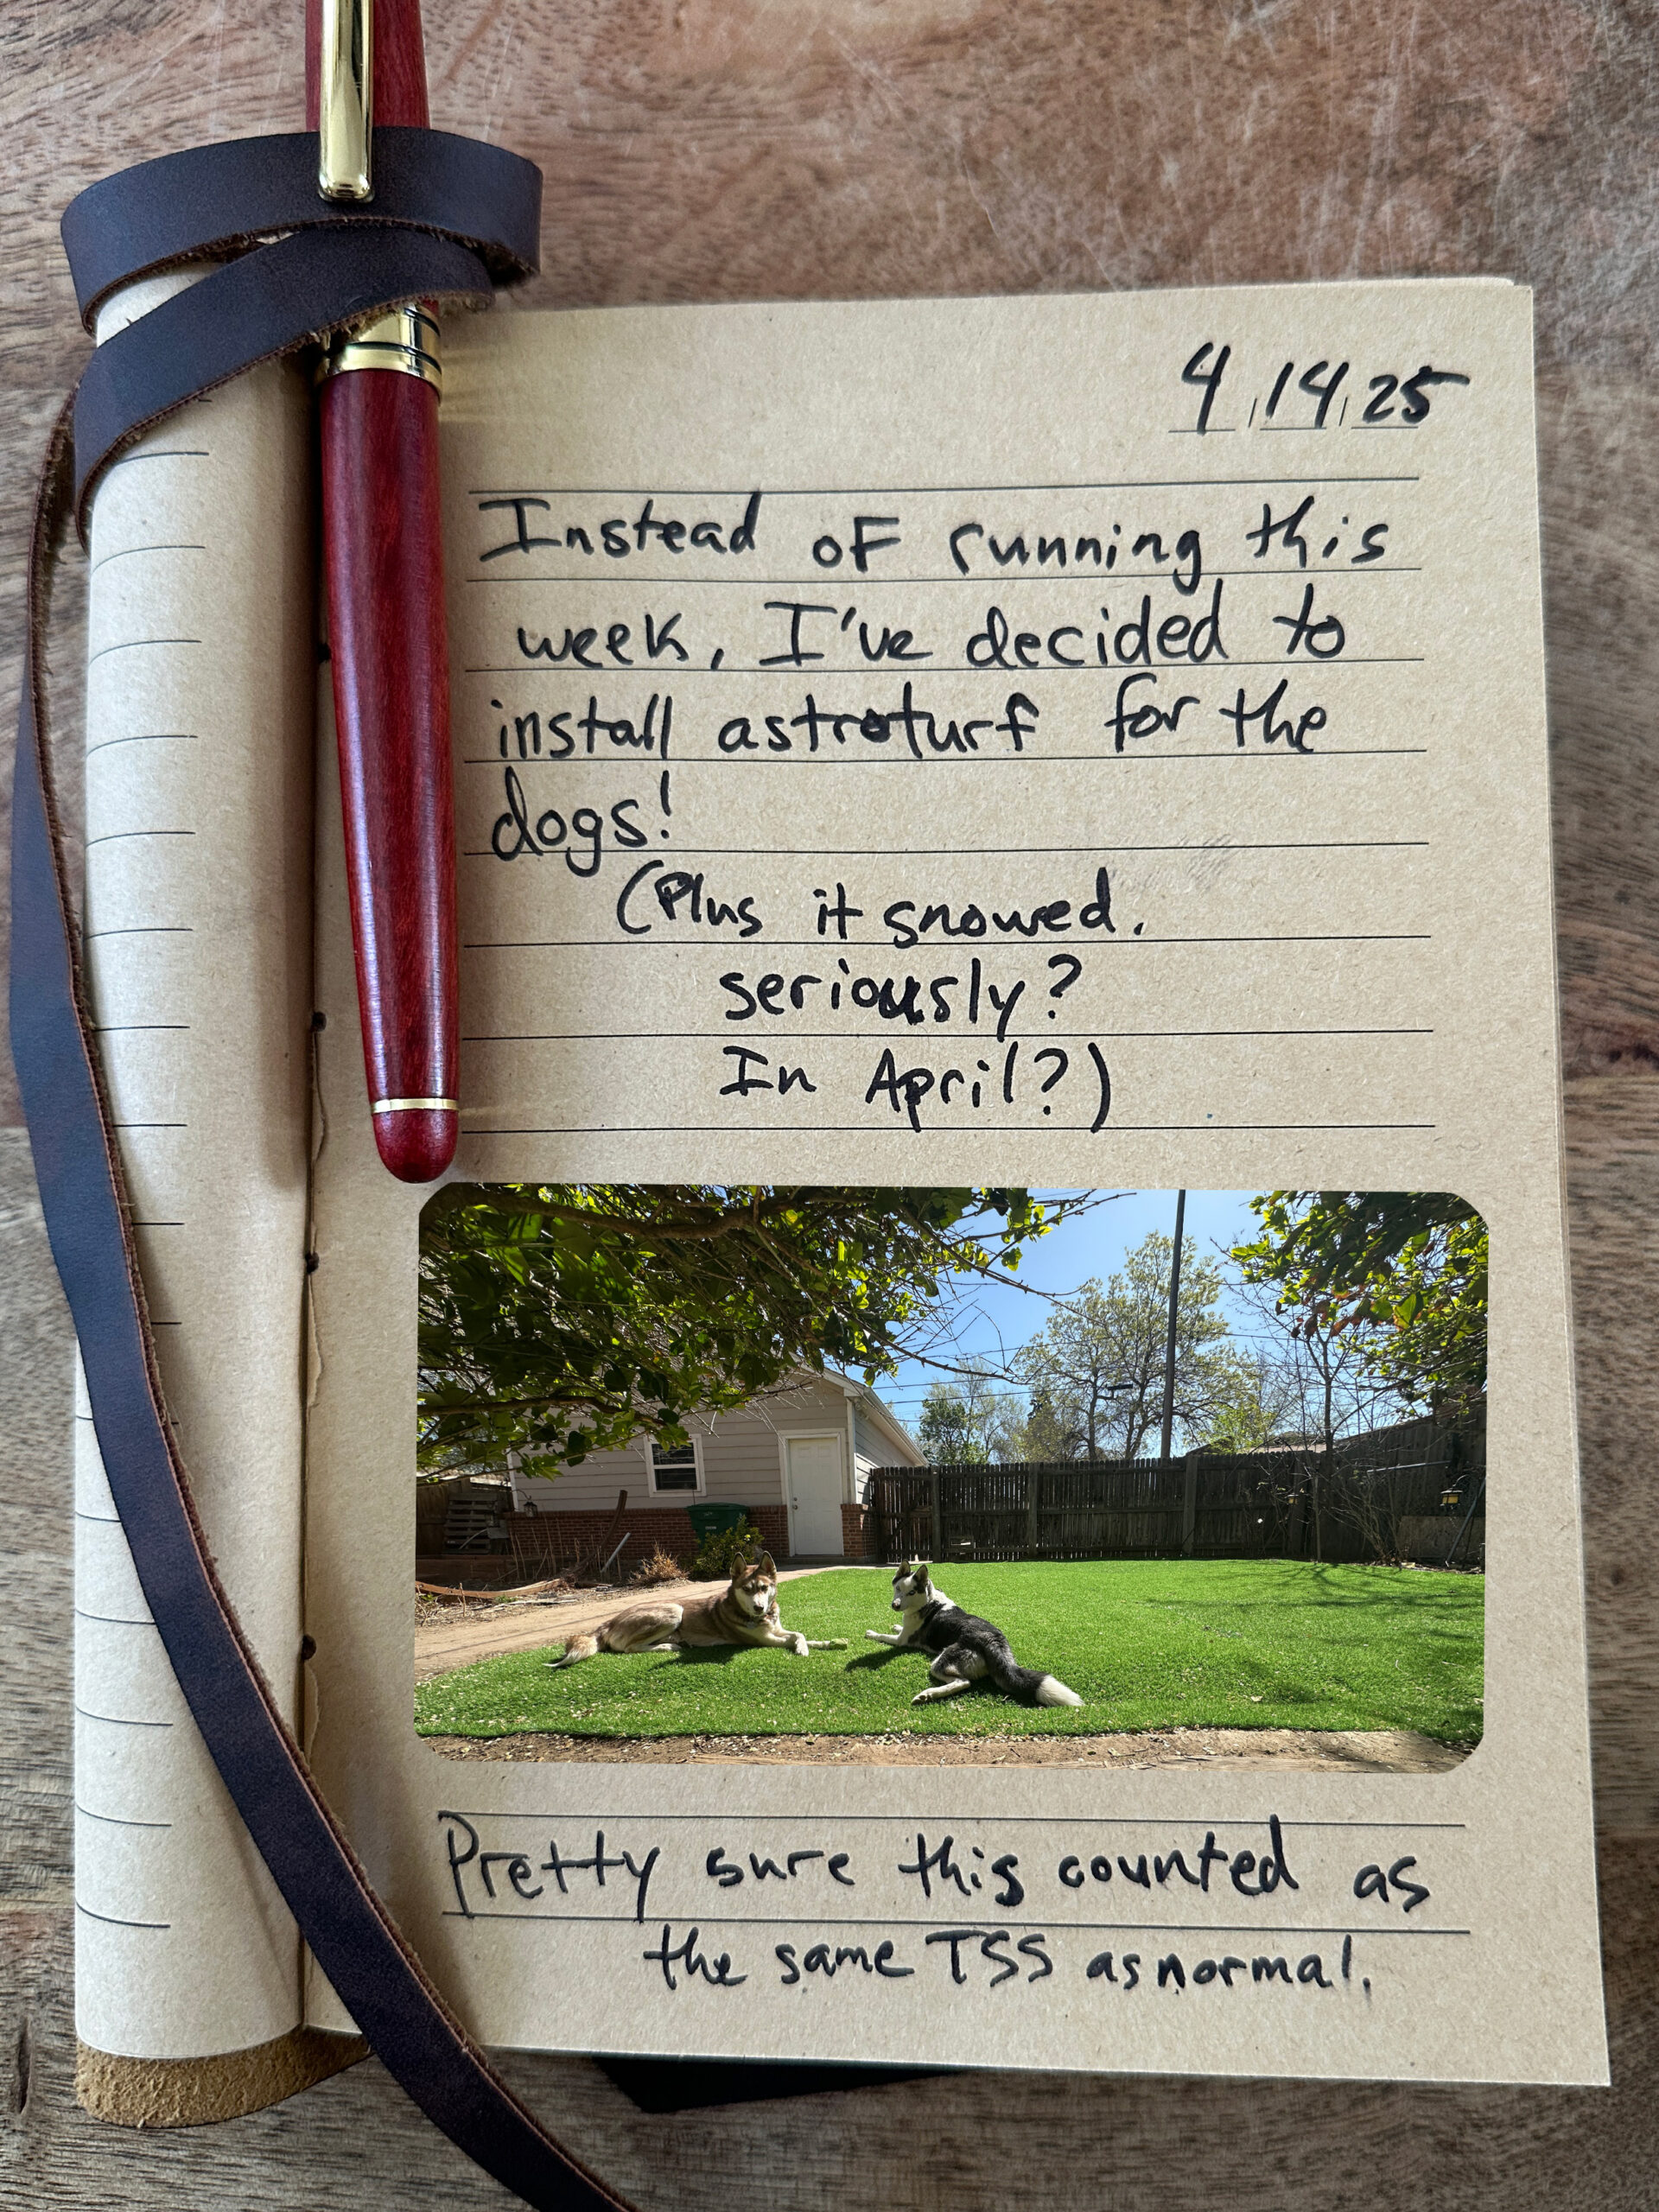 4/14/25
Instead of running this
week, I've decided to
install astroturf for the
dogs!
(Plus it snowed.
seriously?
In April?)
Pretty sure this counted as
the same TSS as normal.